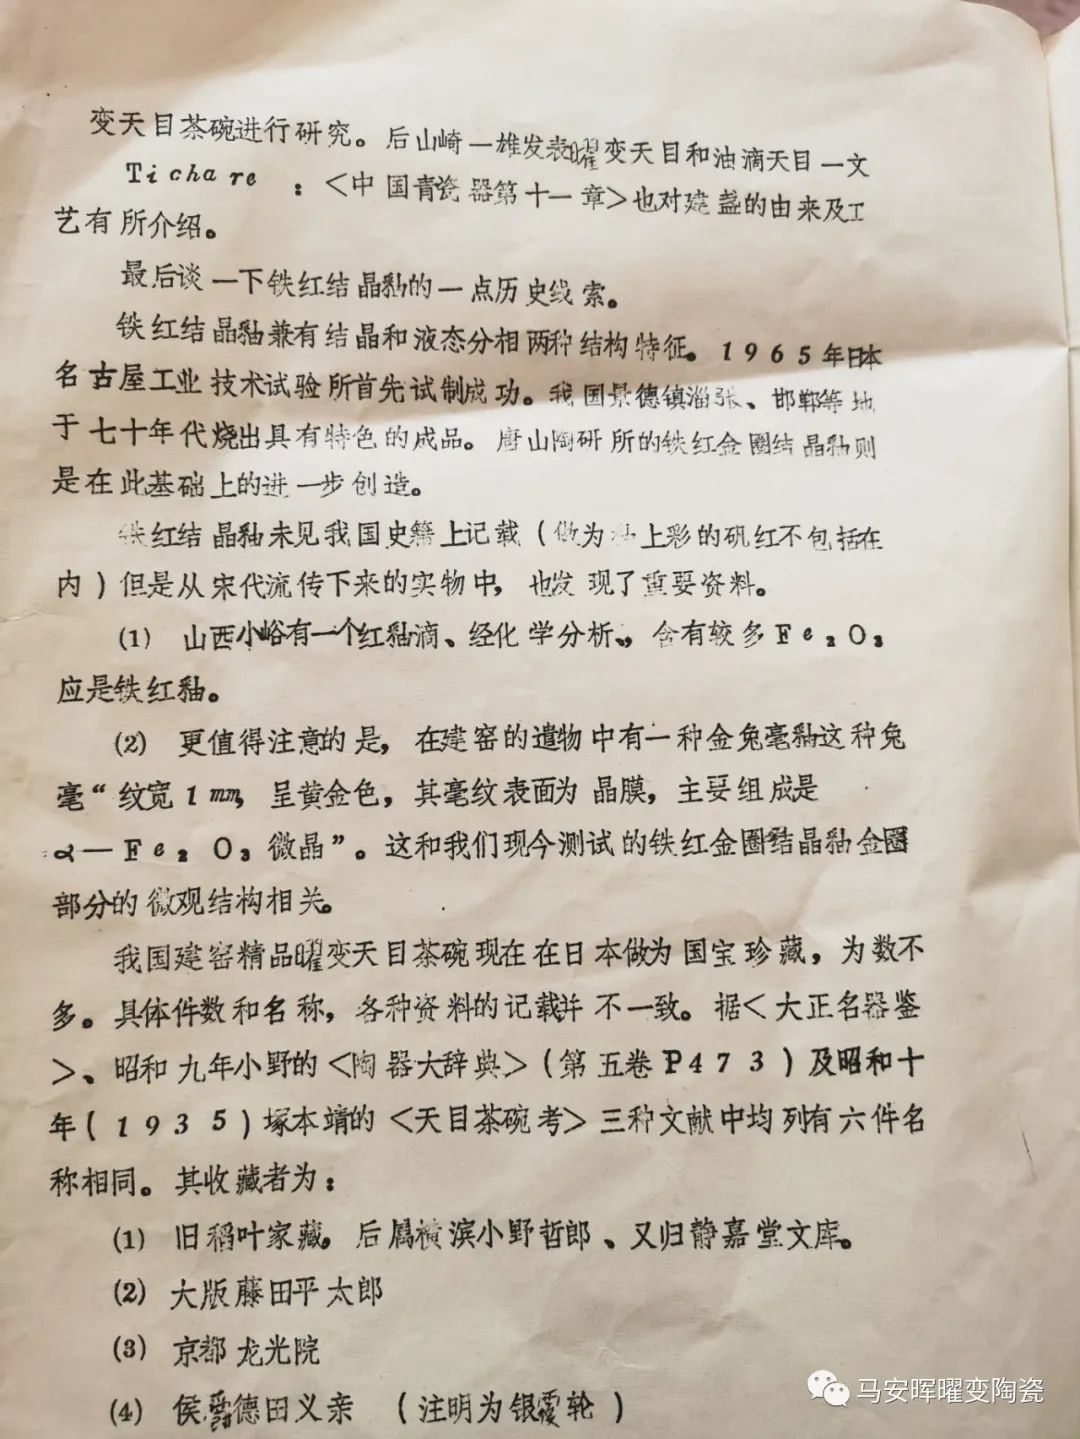 变天目茶碗进行研究。后山崎一雄发表曜变天目和油滴天目一文
Tichare :<中国青瓷器第十一章>也对建盏的由来及工
艺有所介绍。
最后谈一下铁红结晶釉的一点历史线索。
铁红结晶釉兼有结晶和液态分相两种结构特征。1965年日本
名古屋工业技术试验所首先试制成功。我国景德镇淄张、邯郸等地
于七十年代烧出具有特色的成品。唐山陶研所的铁红金圈结晶釉则
是在此基础上的进一步创造。
铁红结晶釉未见我国史籍上记载(做为釉上彩的矾红不包括在
内)但是从宋代流传下来的实物中,也发现了重要资料。
(1) 山西小峪有一个红釉滴、经化学分析、,含有较多Fe₂O₃
应是铁红釉。
(2) 更值得注意的是,在建窑的遗物中有一种金兔毫釉这种兔
毫“纹宽1mm,呈黄金色,其毫纹表面为晶膜,主要组成是
α—Fe₂O₃微晶”。这和我们现今测试的铁红金圈结晶釉金圈
部分的微观结构相关。
我国建窑精品曜变天目茶碗现在在日本做为国宝珍藏,为数不
多。具体件数和名称,各种资料的记载并不一致。据<大正名器鉴
>、昭和九年小野的<陶器大辞典>(第五卷P473)及昭和十
年(1935)塚本靖的<天目茶碗考>三种文献中均列有六件名
称相同。其收藏者为:
(1) 旧稻叶家藏。后属横滨小野哲郎、又归静嘉堂文库。
(2) 大版藤田平太郎
(3) 京都龙光院
(4) 侯爵德田义亲 (注明为银覆轮)
马安晖曜变陶瓷